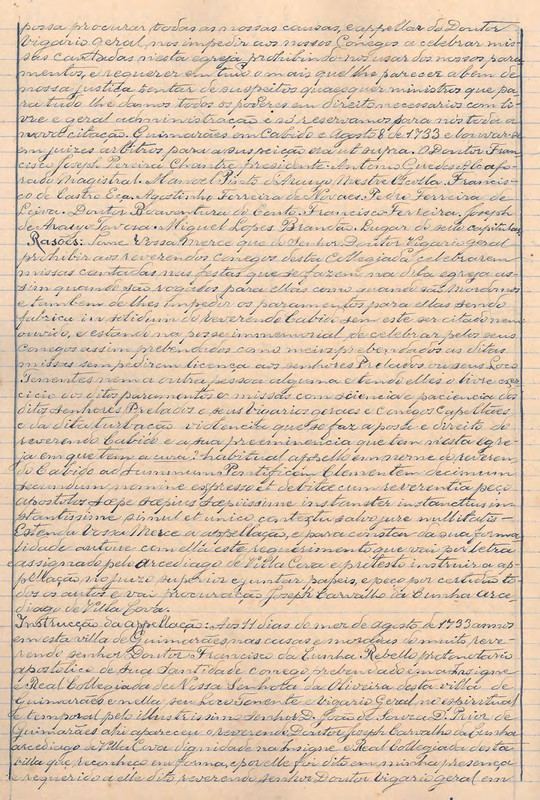 possa procurar todas as nossas causas, e appellar do Doutor
Vigario geral, nos impedir aos nossos Conegos a celebrar mis-
sas cantadas nesta egreja prohibindo-nos usar dos nossos para-
mentos, e requerer em tudo o mais que lhe parecer a bem de
nossa justiça tentar de suspeitos quaesquer ministros que pa-
ra tudo lhe damos todos os poderes em direito necessarios com li-
vre e geral administração e só reservamos para nós toda a
nova citação. Guimarães em Cabido e Agosto 8 de 1733 e louvar-se
em juizes arbitros para a suspeição era ut supra. O Doutor Fran-
cisco Joseph Pereira Chantre Presidente. Antonio Guedes Alcafo-
rado Magistral. Manoel Pinto de Araujo Mestre Escola. Francis-
co de Castro Eça. Agostinho Ferreira de Novaes. Pedro Ferreira de
Leiva. Doutor Boaventura do Couto. Francisco Ferreira. Joseph
de Araujo Tavora. Miguel Lopes Brandão. Lugar do sello capitular.
Rasões: Sane Vossa Mercê que do Senhor Doutor Vigario geral
prohibir aos reverendos conegos desta Collegiada celebrarem
missas cantadas nas festas que se fazem na dita egreja as-
sim quando são rogados para ellas como quando são Mordomos
e tambem de lhes impedir os paramentos, para ellas sendo
fabrica in solidum do reverendo Cabido sem este ser citado nem
ouvido, e estando na posse immemorial de celebrar pelos seus
conegos assim prebendados como meios prebendados as ditas
missas sem pedirem licença aos senhores Prelados ou seus Loco
Tenentes nem a outra pessoa alguma e tendo elles o livre exer-
cicio dos ditos paramentos e missas com sciencia e paciencia dos
ditos senhores Prelados e seus Vigarios geraes e Conegos Capellães
e da dita turbação violencia que se faz a posse e direito do
reverendo Cabido e a sua preeminencia que tem nesta egre-
ja em que tem a cura habitual appello em nome do reveren-
do Cabido ad Summum Pontificem Clementem decimum
secundum nomine expresso et debita cum reverentia peço
apostolos sæpe sæpius sæpissime instanter instantius in-
stantissime simul et unico contextu salvo jure nullitatis -
Estenda Vossa Mercê a appellação, e para constar da sua forma-
lidade autoue com ella este requerimento que vai por letra
e assignado pelo arcediago de Villa Cova e protesto instruir a ap-
pellação no juizo superior e juntar papeis, e peço por certidão to-
dos os autos e vai procuração Joseph Carvalho da Cunha Arce-
diago de Villa Cova.
Instrucção da appellação: Aos 11 dias do mez de agosto de 1733 annos
em esta villa de Guimarães nas casas e moradas do muito reve-
rendo senhor Doutor Francisco da Cunha Rebello protonotario
apostolico de Sua Santidade conego prebendado em a Insigne
e Real Collegiada de Nossa Senhora da Oliveira desta villa de
Guimarães e nella seu Loco Tenente e Vigario Geral no espiritual
e temporal pelo illustrissimo senhor D. João de Sousa D. Prior de
Guimarães ahi appareceu o reverendo Doutor Joseph Carvalho da Cunha
arcediago de Villa Cova dignidade na Insigne e Real Collegiada desta
villa que reconheço em forma, e por elle foi dito em minha presença
e requerido a elle dito reverendo senhor Doutor Vigario geral em